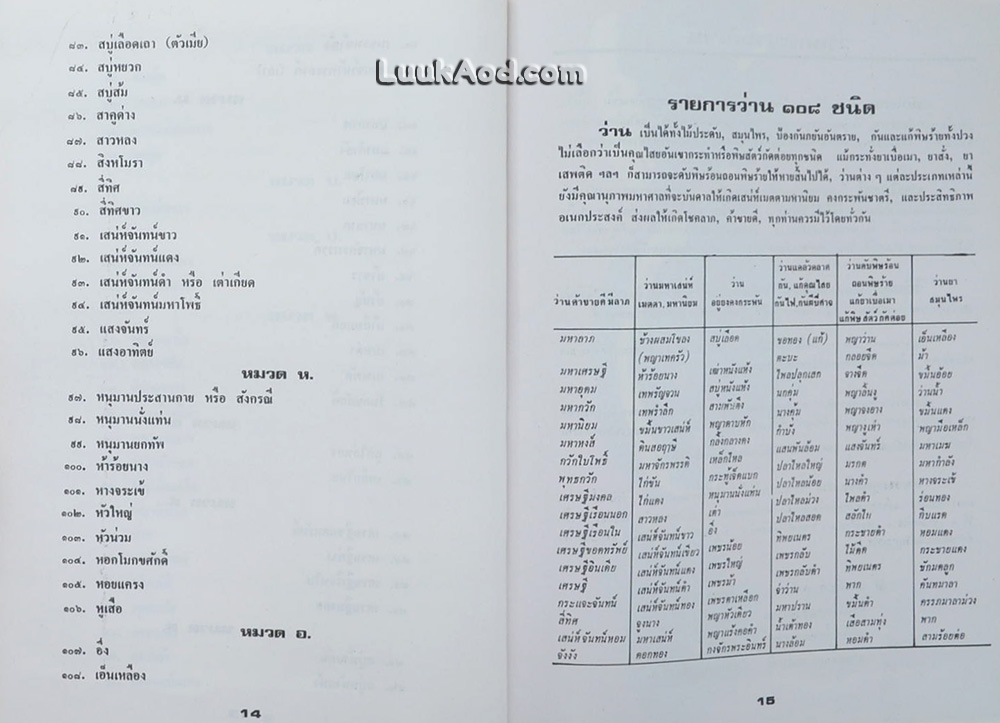 LuukAod.com
๘๓. สบู่เลือดเถา (ตัวเมีย)
๘๔. สบู่หยวก
๘๕. สบู่ส้ม
๘๖. สาคูด่าง
๘๗. สาวหลง
๘๘. สิงหโมรา
๘๙. สี่ทิศ
๙๐. สี่ทิศขาว
๙๑. เสน่ห์จันทน์ขาว
๙๒. เสน่ห์จันทน์แดง
๙๓. เสน่ห์จันทน์ดำ หรือ เต่าเกียด
๙๔. เสน่ห์จันทน์มหาโพธิ์
๙๕. แสงจันทร์
๙๖. แสงอาทิตย์
หมวด ห.
๙๗. หนุมานประสานกาย หรือ สังกรณี
๙๘. หนุมานนั่งแท่น
๙๙. หนุมานยกทัพ
๑๐๐. ห้าร้อยนาง
๑๐๑. หางจระเข้
๑๐๒. หัวใหญ่
๑๐๓. หัวน่วม
๑๐๔. หอกโมกขศักดิ์
๑๐๕. หอยแครง
๑๐๖. หูเสือ
หมวด อ.
๑๐๗. อึ่ง
๑๐๘. เอ็นเหลือง
14
รายการว่าน ๑๐๘ ชนิด
ว่าน เป็นได้ทั้งไม้ประดับ, สมุนไพร, ป้องกันภยันอันตราย, กันและแก้พิษร้ายทั้งปวง
ไม่เลือกว่าเป็นคุณไสยอันเขากระทำหรือพิษสัตว์กัดต่อยทุกชนิด แม้กระทั่งยาเบื่อเมา, ยาสั่ง, ยา
เสพติด ฯลฯ ก็สามารถจะดับพิษร้อนถอนพิษร้ายให้หายสิ้นไปได้, ว่านต่าง ๆ แต่ละประเภทเหล่านี้
ยังมีคุณานุภาพมหาศาลที่จะบันดาลให้เกิดเสน่ห์เมตตามหานิยม คงกระพันชาตรี, และประสิทธิภาพ
อเนกประสงค์ ส่งผลให้เกิดโชคลาภ, ค้าขายดี, ทุกท่านควรมีไว้โดยทั่วกัน
ว่านค้าขายดี มีลาภ
ว่านมหาเสน่ห์
เมตตา, มหานิยม
ว่าน
อยู่ยงคงกระพัน
ว่านแคล้วคลาด
กัน, แก้คุณไสย
กันไฟ, กันผีปีศาจ
ว่านดับพิษร้อน
ถอนพิษร้าย
แก้ยาเบื่อเมา
แก้พิษสัตว์กัดต่อย
ว่านยา
สมุนไพร
มหาลาภ ช้างผสมโขลง สบู่เลือด ขอทอง (แก้) พญาว่าน เอ็นเหลือง
(พญาเทครัว) ตะบะ กลอยจืด ม้า
มหาเศรษฐี ห้าร้อยนาง เฒ่าหนังแห้ง ไพลปลุกเสก จางจืด ขมิ้นอ้อย
มหาอุดม เทพรัญจวน สบู่หนังแห้ง นกคุ่ม พญาลิ้นงู ว่านน้ำ
มหากวัก เทพรำลึก สามพันตึง นางคุ้ม พญาจงอาง ขมิ้นแดง
มหานิยม ขมิ้นขาวเสน่ห์ พญาดาบหัก กำบัง พญางูเห่า พญามือเหล็ก
มหาหงส์ ดินสอฤาษี กลิ้งกลางดง แสนพันล้อม แสงจันทร์ มหาเมฆ
กวักใบโพธิ์ มหาจักรพรรดิ เหล็กไหล ปลาไหลใหญ่ มรกต มหากำลัง
พุทธกวัก ไก่ขัน กระทู้เจ็ดแบก ปลาไหลน้อย นางคำ หางจระเข้
เศรษฐีมงคล ไก่แดง หนุมานนั่งแท่น ปลาไหลม่วง ไพลดำ ร่อนทอง
เศรษฐีเรือนนอก สาวหลง เต่า ปลาไหลสอด สลักไก กีบแรด
เศรษฐีเรือนใน เสน่ห์จันทน์ขาว อึ่ง ทิพยเนตร กระชายดำ หอมแดง
เศรษฐีขอดทรัพย์ เสน่ห์จันทน์เขียว เพชรน้อย เพชรกลับ ไม้ตีด กระชายแดง
เศรษฐีอินเดีย เสน่ห์จันทน์แดง เพชรใหญ่ เพชรกลับดำ ทิพยเนตร ชักมดลูก
เศรษฐี เสน่ห์จันทน์ดำ เพชรม้า จ่าว่าน พาก คันทมาลา
กระแจะจันทน์ เสน่ห์จันทน์ทอง เพชรตาเหลือก มหาปราบ ขมิ้นดำ ครรภมาลาม่วง
สี่ทิศ จูงนาง พญาหัวเดียว น้ำเต้าทอง เสือสามทุ่ง พาก
เสน่ห์จันทน์หอม มหาเสน่ห์ พญาแร้งคอดำ นางล้อม หอมดำ สามร้อยต่อ
จังงัง ดอกทอง กงจักรพระอินทร์
15